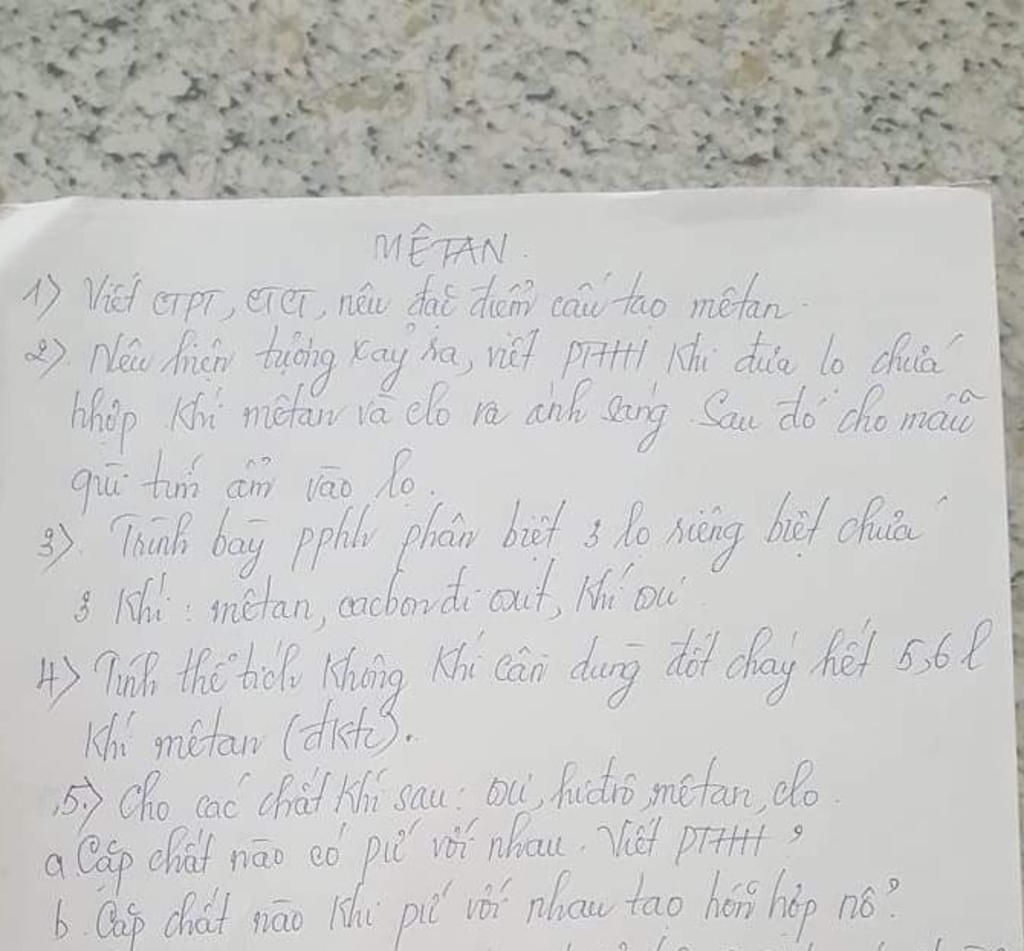 MÊTAN.
1) Viết CTPT, CTCT, nêu đặc điểm cấu tạo mêtan.
2). Nêu hiện tượng xảy ra, viết PTHH khi đưa lọ chứa
hhợp khí mêtan và clo ra ánh sáng. Sau đó cho mẫu
quì tím ẩm vào lọ.
3). Trình bày pphh phân biệt 3 lọ riêng biệt chứa
3 khí: mêtan, cacbonđi oxit, khí oxi
4) Tính thể tích không khí cần dùng đốt cháy hết 5,6 l
khí mêtan (đktc).
5.) Cho các chất khí sau: oxi, hiđrô, mêtan, clo.
a. Cặp chất nào có pứ với nhau. Viết PTHH?
b. Cặp chất nào khi pứ với nhau tạo hỗn hợp nổ?